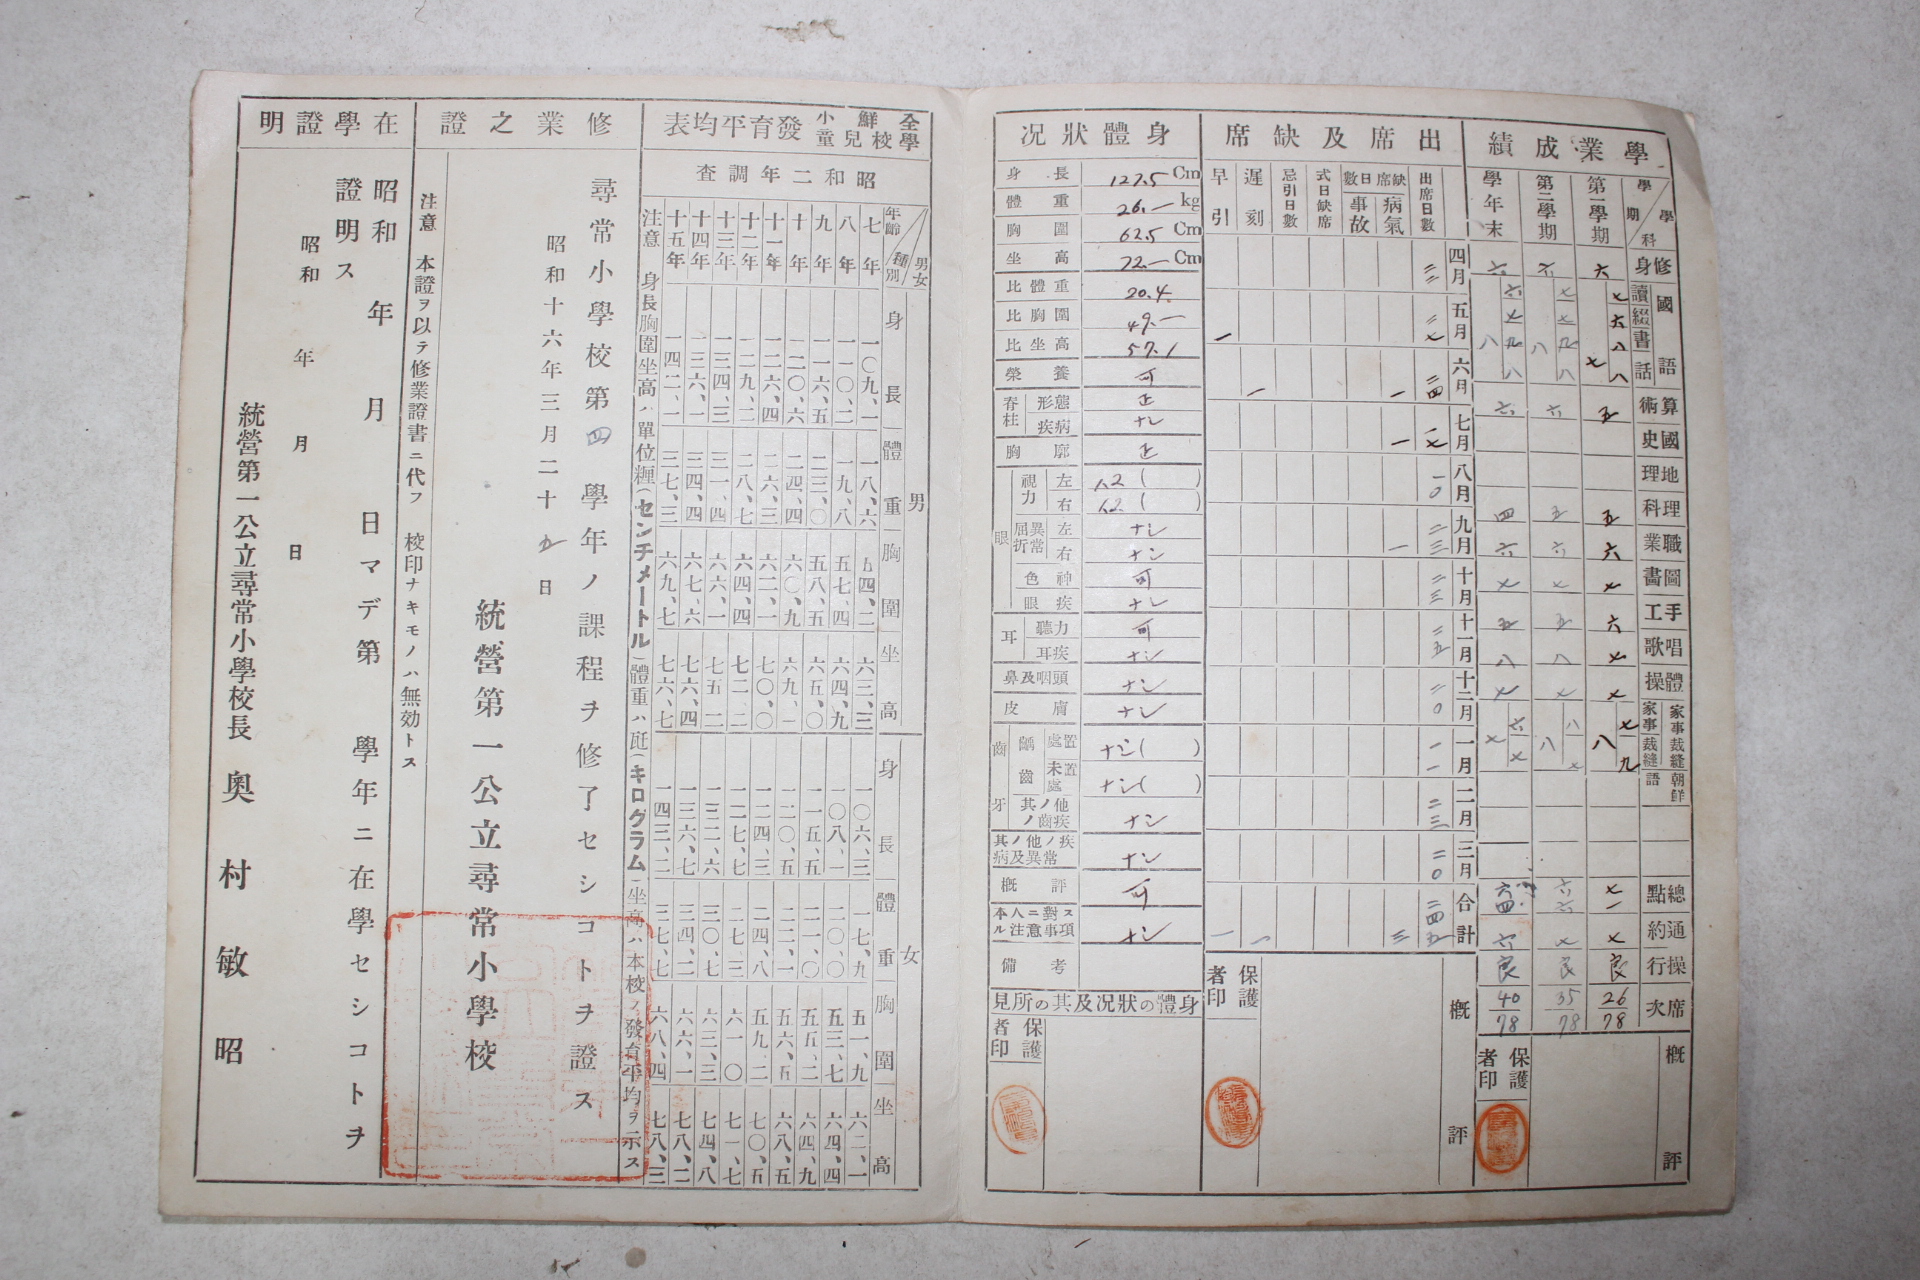 學業成績
學期 學科
第一學期
第二學期
學年末
修身 六 六 六
國語
讀 七 七 六
綴 六 七 七
書 八 九 九
話 八 八 八
七 八 八
算術 五 六 六
國史
地理
理科 五 五 四
職業 六 六 六
圖畫 七 七 七
手工 六 五 五
唱歌 七 八 八
體操 七 七 七
家事裁縫
家事 七 八 六
裁縫 九 七 七
八 八 七
朝鮮語
總點 七一 六六 六四
通約 七 七 六
操行 良 良 良
席次 26/78 35/78 40/78
概評
保護者印
出席及缺席
出席日數
缺席日數
病氣
事故
式日缺席
忌引日數
遲刻
早引
四月 二三
五月 二七 一
六月 二四 一 一
七月 一七 一
八月 一〇
九月 二三 一
十月 二三
十一月 二五
十二月 二〇
一月 一一
二月 二三
三月 二〇
合計 二四五 三 一 一
概評
保護者印
身體狀况
身長 127.5 Cm
體重 26.— kg
胸圍 62.5 Cm
坐高 72.— Cm
比體重 20.4
比胸圍 49.—
比坐高 57.1
榮養 可
脊柱
形態 正
疾病 ナシ
胸廓 正
眼
視力
左 1.2 ( )
右 1.2 ( )
屈折異常
左 ナシ
右 ナシ
色神 可
眼疾 ナシ
耳
聽力 可
耳疾 ナシ
鼻及咽頭 ナシ
皮膚 ナシ
齒牙
齲齒
處置 ナシ( )
未處置 ナシ( )
其ノ他ノ齒疾 ナシ
其ノ他ノ疾病及異常 ナシ
概評 可
本人ニ對スル注意事項 ナシ
備考
身體の狀况及其の所見
保護者印
全鮮小學校兒童發育平均表
昭和二年調査
年齡 種別 男女
男 身長 體重 胸圍 坐高
女 身長 體重 胸圍 坐高
七年 一〇九、一 一八、六 五四、二 六三、三 一〇六、三 一七、九 五一、九 六二、一
八年 一一〇、二 一九、八 五七、四 六四、九 一〇八、一 二〇、〇 五三、七 六四、四
九年 一一六、五 二三、〇 五八、五 六五、〇 一一五、五 二一、〇 五五、二 六四、九
十年 一二〇、六 二四、四 六〇、九 六九、一 一二〇、五 二二、一 五六、五 六八、五
十一年 一二六、四 二六、三 六二、一 七〇、〇 一二四、三 二四、八 五九、二 七〇、五
十二年 一二九、二 二八、七 六四、四 七二、二 一二七、七 二七、三 六一、〇 七一、七
十三年 一三四、三 三一、四 六六、一 七五、二 一三二、六 三〇、七 六三、三 七四、八
十四年 一三六、一 三四、四 六七、六 七六、四 一三六、七 三四、二 六六、一 七八、二
十五年 一四二、一 三七、三 六九、七 七六、七 一四三、二 三七、七 六八、四 七八、三
注意 身長胸圍坐高ハ單位糎(センチメートル)體重ハ瓩(キログラム)坐高ハ本校ノ發育平均ヲ示ス
修業之證
尋常小學校第四學年ノ課程ヲ修了セシコトヲ證ス
昭和十六年三月二十五日
統營第一公立尋常小學校
注意 本證ヲ以テ修業證書ニ代フ 校印ナキモノハ無効トス
在學證明
昭和 年 月 日マデ第 學年ニ在學セシコトヲ
證明ス
昭和 年 月 日
統營第一公立尋常小學校長 奥村敏昭